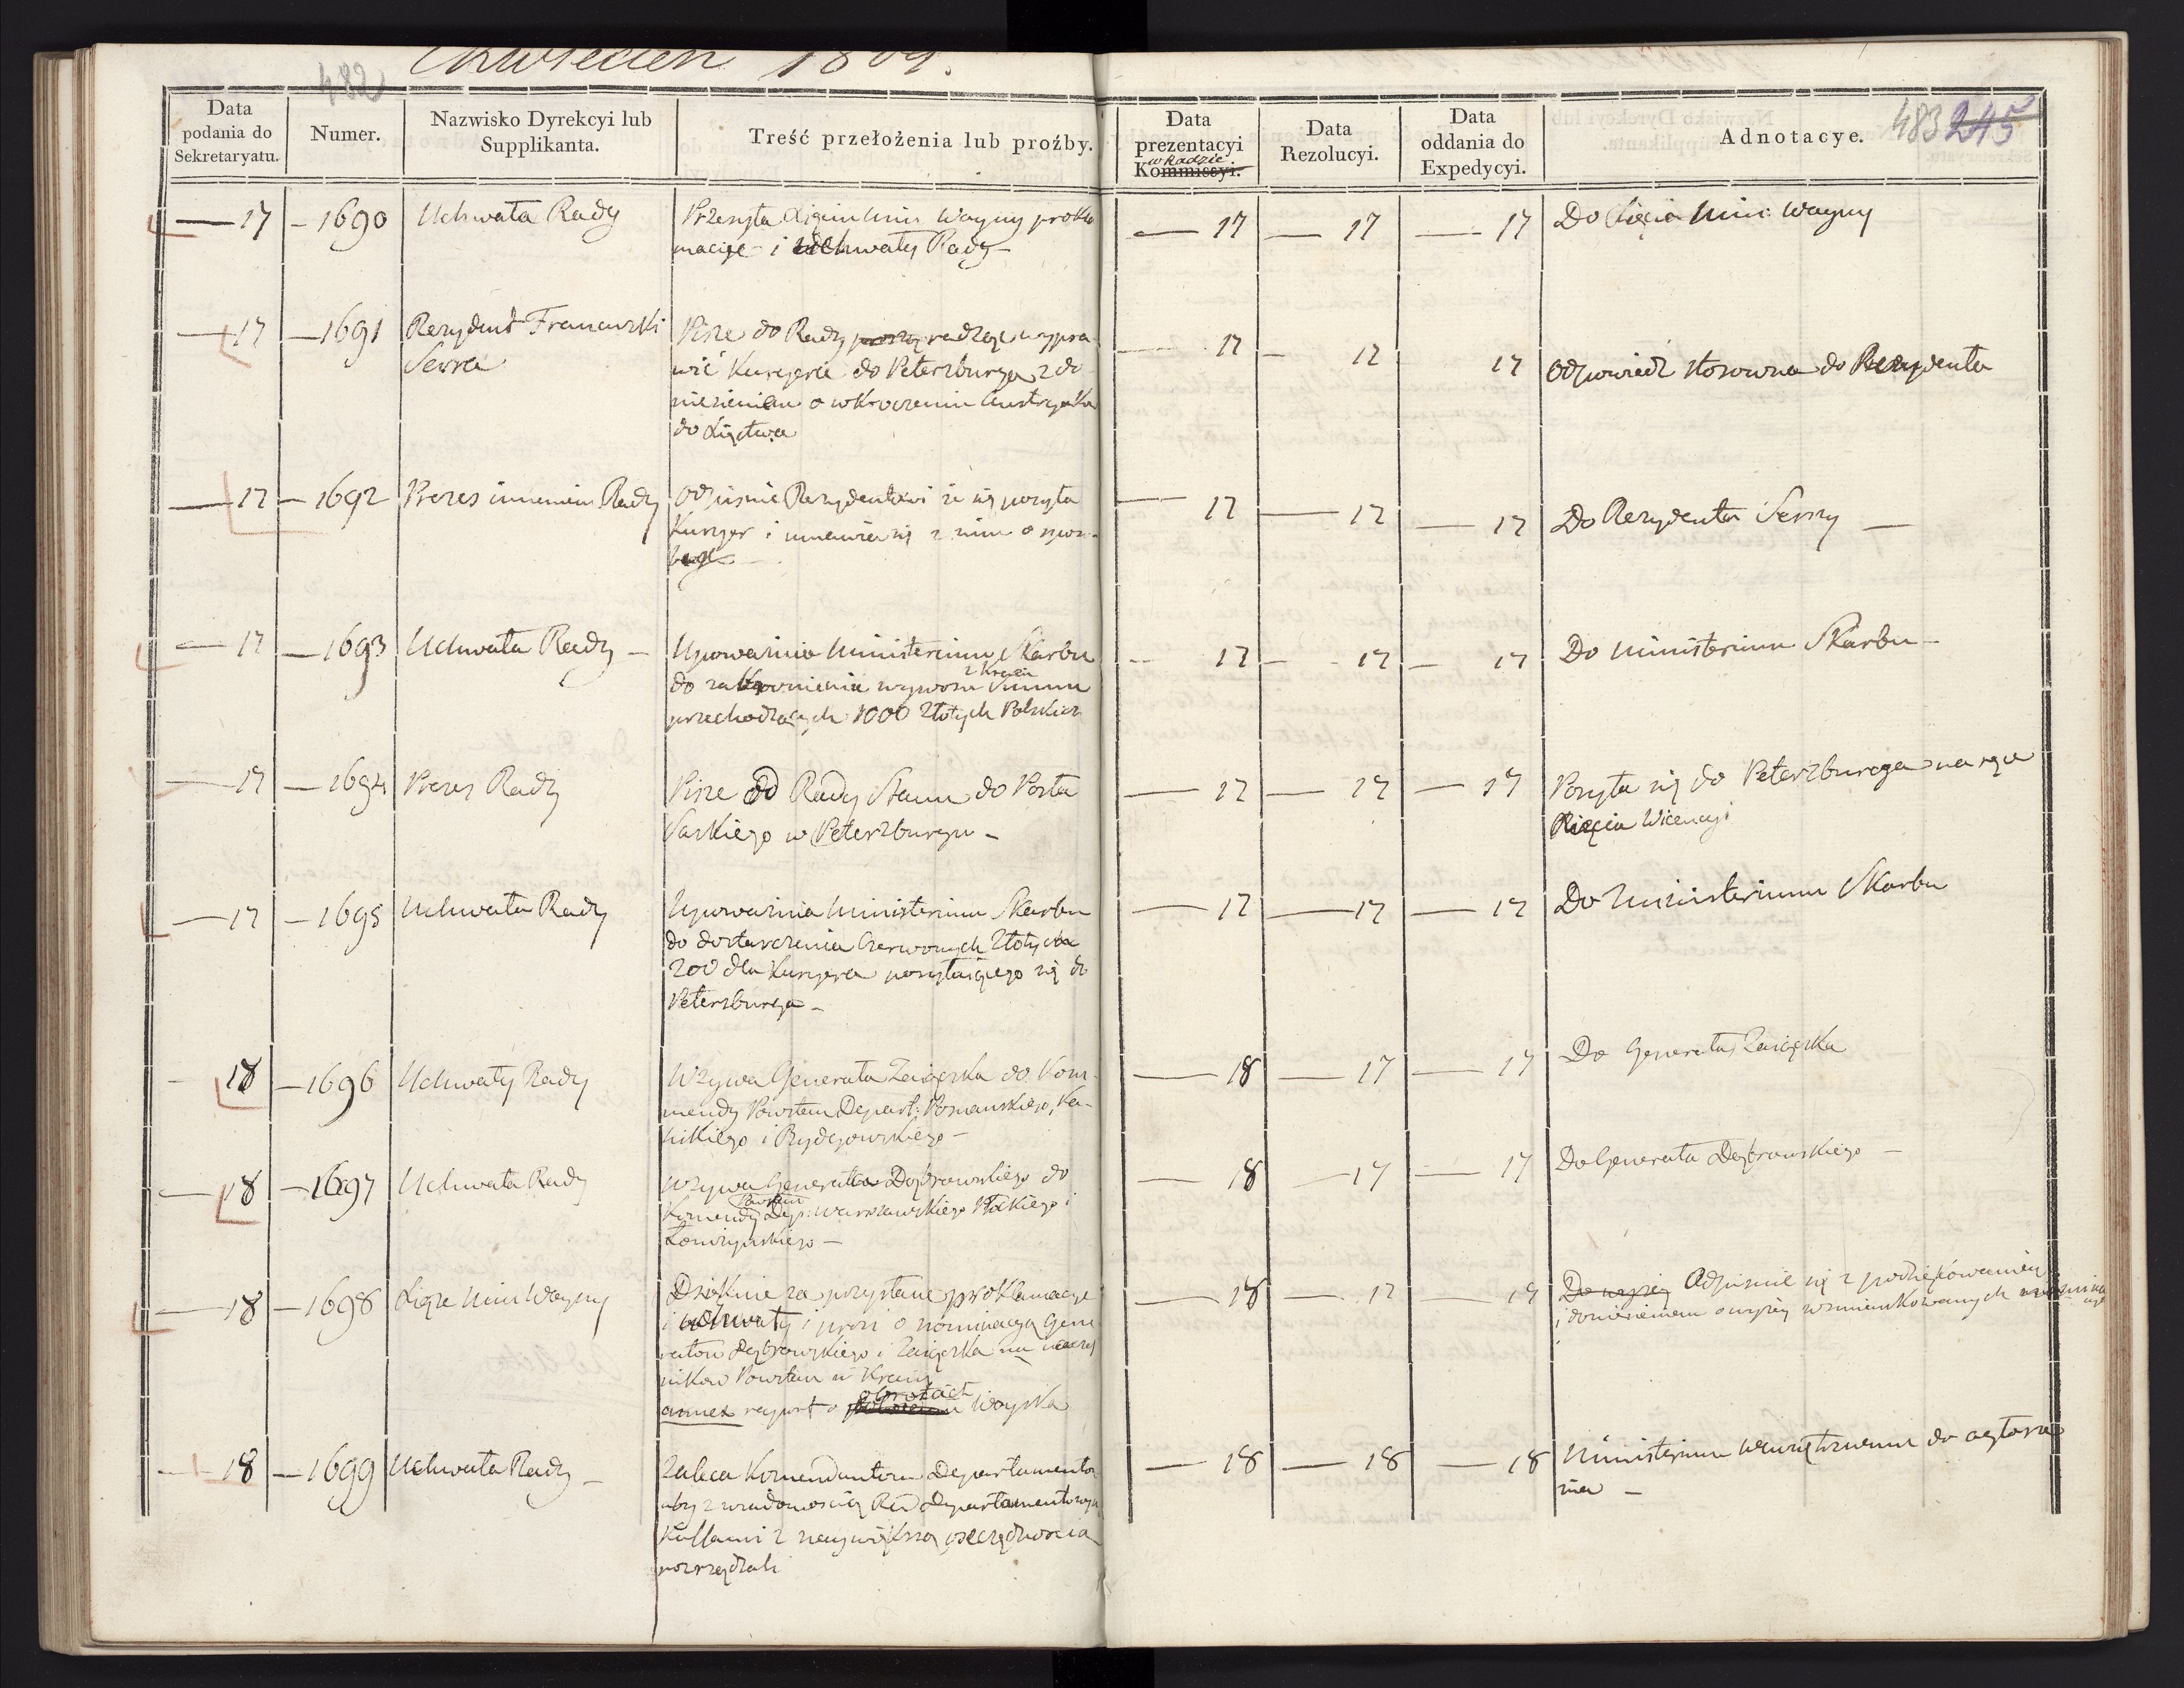 Kwiecień 1809.
482
483 245
Data podania do Sekretaryatu.
Numer.
Nazwisko Dyrekcyi lub Supplikanta.
Treść przełożenia lub proźby.
Data prezentacyi w Radzie Kommissyi.
Data Rezolucyi.
Data oddania do Expedycyi.
Adnotacye.
— 17 — 1690 Uchwała Rady
Przesyła Xięciu Min: Woyny prokla
macije i uchwały Rady —
— 17 — 17 — 17 Do Xięcia Min: Woyny
— 17 — 1691 Rezydent Francuzki
Serra
Pisze do Rady radząc wypra-
wić Kuryera do Petersburga z do
niesieniem o wkroczeniu Austryaków
do Xięstwa
— 17 — 17 17 Odpowiedź stosowna do Rezydenta
— 17 — 1692 Prezes imieniem Rady
Odpisuie Rezydentowi że się posyła
Kuryer i umawia się z nim o
— 17 — 17 — 17 Do Rezydenta Serry —
— 17 — 1693 Uchwała Rady —
Upoważnia Ministerium Skarbu
z Kraiu
do zabronienia wywozu Summ
przechodzących 1000 Złotych Polskich
— 17 — 17 — 17 Do Ministerium Skarbu —
— 17 — 1694 Prezes Rady
Pisze od Rady Stanu do Posła
Saskiego w Petersburgu —
— 17 — 17 — 17 Posyła się do Petersburga na ręce
Xięcia Wicencyi
— 17 — 1695 Uchwała Rady
Upoważnia Ministerium Skarbu
do dostarczenia Czerwonych Złotych
200 dla Kuryera posyłaiącego się do
Petersburga —
— 17 — 17 — 17 Do Ministerium Skarbu
— 18 — 1696 Uchwały Rady
Wzywa Generała Zaiączka do Kom-
mendy Powstan Depart: Poznanskiego, Ka-
liskiego i Bydgowskiego —
— 18 — 17 — 17 Do Generała Zaiączka
— 18 — 1697 Uchwała Rady
Wzywa Generała Dąbrowskiego do
Powstan
Komendy Dep: Warszawskiego Płockiego i
Łomżyńskiego —
— 18 — 17 — 17 Do Generała Dąbrowskiego —
— 18 — 1698 Xiąże Min Woyny
Dziękuie za przysłane proklamacye
i uchwały i prosi o nominacyą Gene
rałow Dąbrowskiego i Zaiączka na naczel
nikow Powstan w Kraiu
obrotach
annex raport o Woyska
— 18 — 17 — 17 Do wyżey Odpisuie się z podziękowaniem
i doniesieniem o wyżey wzmiankowanych
— 18 — 1699 Uchwała Rady —
Zaleca Komendantom Departamentow
aby z wiadomością Rad Departamentowych
Kassami z naywiększą oszczędnoscia
rozrządzali
— 18 — 18 — 18 Ministerium Wewnętrznemu do ogłosze
nia —